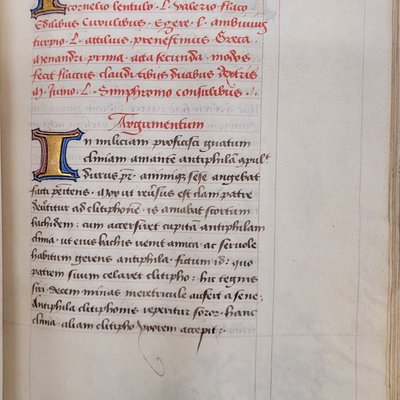 cornelio lentulo . L . Valerio flaco
Edilibus Curulibus . Egere . L . ambiuius
turpio . L . attilius . prenestinus . Greca .
Menandri . prima . acta secunda . modos
fecit flaccus claudi . tibus . duabus . dextris
M . Iunio . L . Simphromo consulibus .
Argumentum
In miliciam proficisci gnatum
cliniam amantē antiphilā 
durus pr̄ . animiq; sese angebat
facti penitens . Mox ut reūsus est clam patre
deūtitur ad clitiphonē . is amabat scortum
bachidem : cum accerseret cupitā antiphilam
clinia . ut eius bachis uenit amica . ac seruole
habitum gerens antiphila . fictum id : quo
patrem suum celaret clitipho : hic tegnis
siri . decem minas meretricule aufert a sene ,
Antiphila clitiphonis reperitur soror . hanc
clinia . aliam clitipho uxorem accepit :